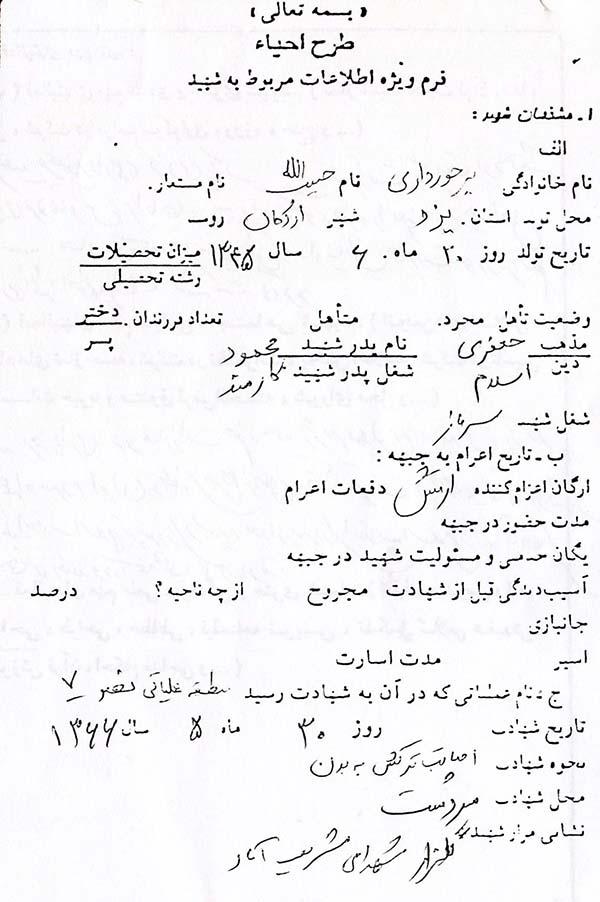 « بسمه تعالی »
طرح احیاء
فرم ویژه اطلاعات مربوط به شهید
۱ـ مشخصات شهید :
الف
نام خانوادگی برخورداری نام حبیب الله نام مستعار.
محل تولد استان. یزد شهر اردکان روستا
تاریخ تولد روز ۲۰ ماه. ۶ سال ۱۳۴۵ میزان تحصیلات
رشته تحصیلی
وضعیت تأهل مجرد. متأهل تعداد فرزندان. دختر
پسر
مذهب جعفری نام پدر شهید محمود
دین اسلام شغل پدر شهید کارمند
شغل شهید سرباز
ب ـ تاریخ اعزام به جبهه :
ارگان اعزام کننده ارتش دفعات اعزام
مدت حضور در جبهه
یگان خدمتی و مسئولیت شهید در جبهه
آسیب دیدگی قبل از شهادت مجروح از چه ناحیه ؟ درصد
جانبازی
اسیر مدت اسارت
ج ـ نام عملیاتی که در آن به شهادت رسید منطقه عملیاتی نصر ۷
تاریخ شهادت روز ۳۰ ماه ۵ سال ۱۳۶۶
نحوه شهادت اصابت ترکش به بدن
محل شهادت سردشت
نشانی مزار شهید گلزار شهدای شریف آباد